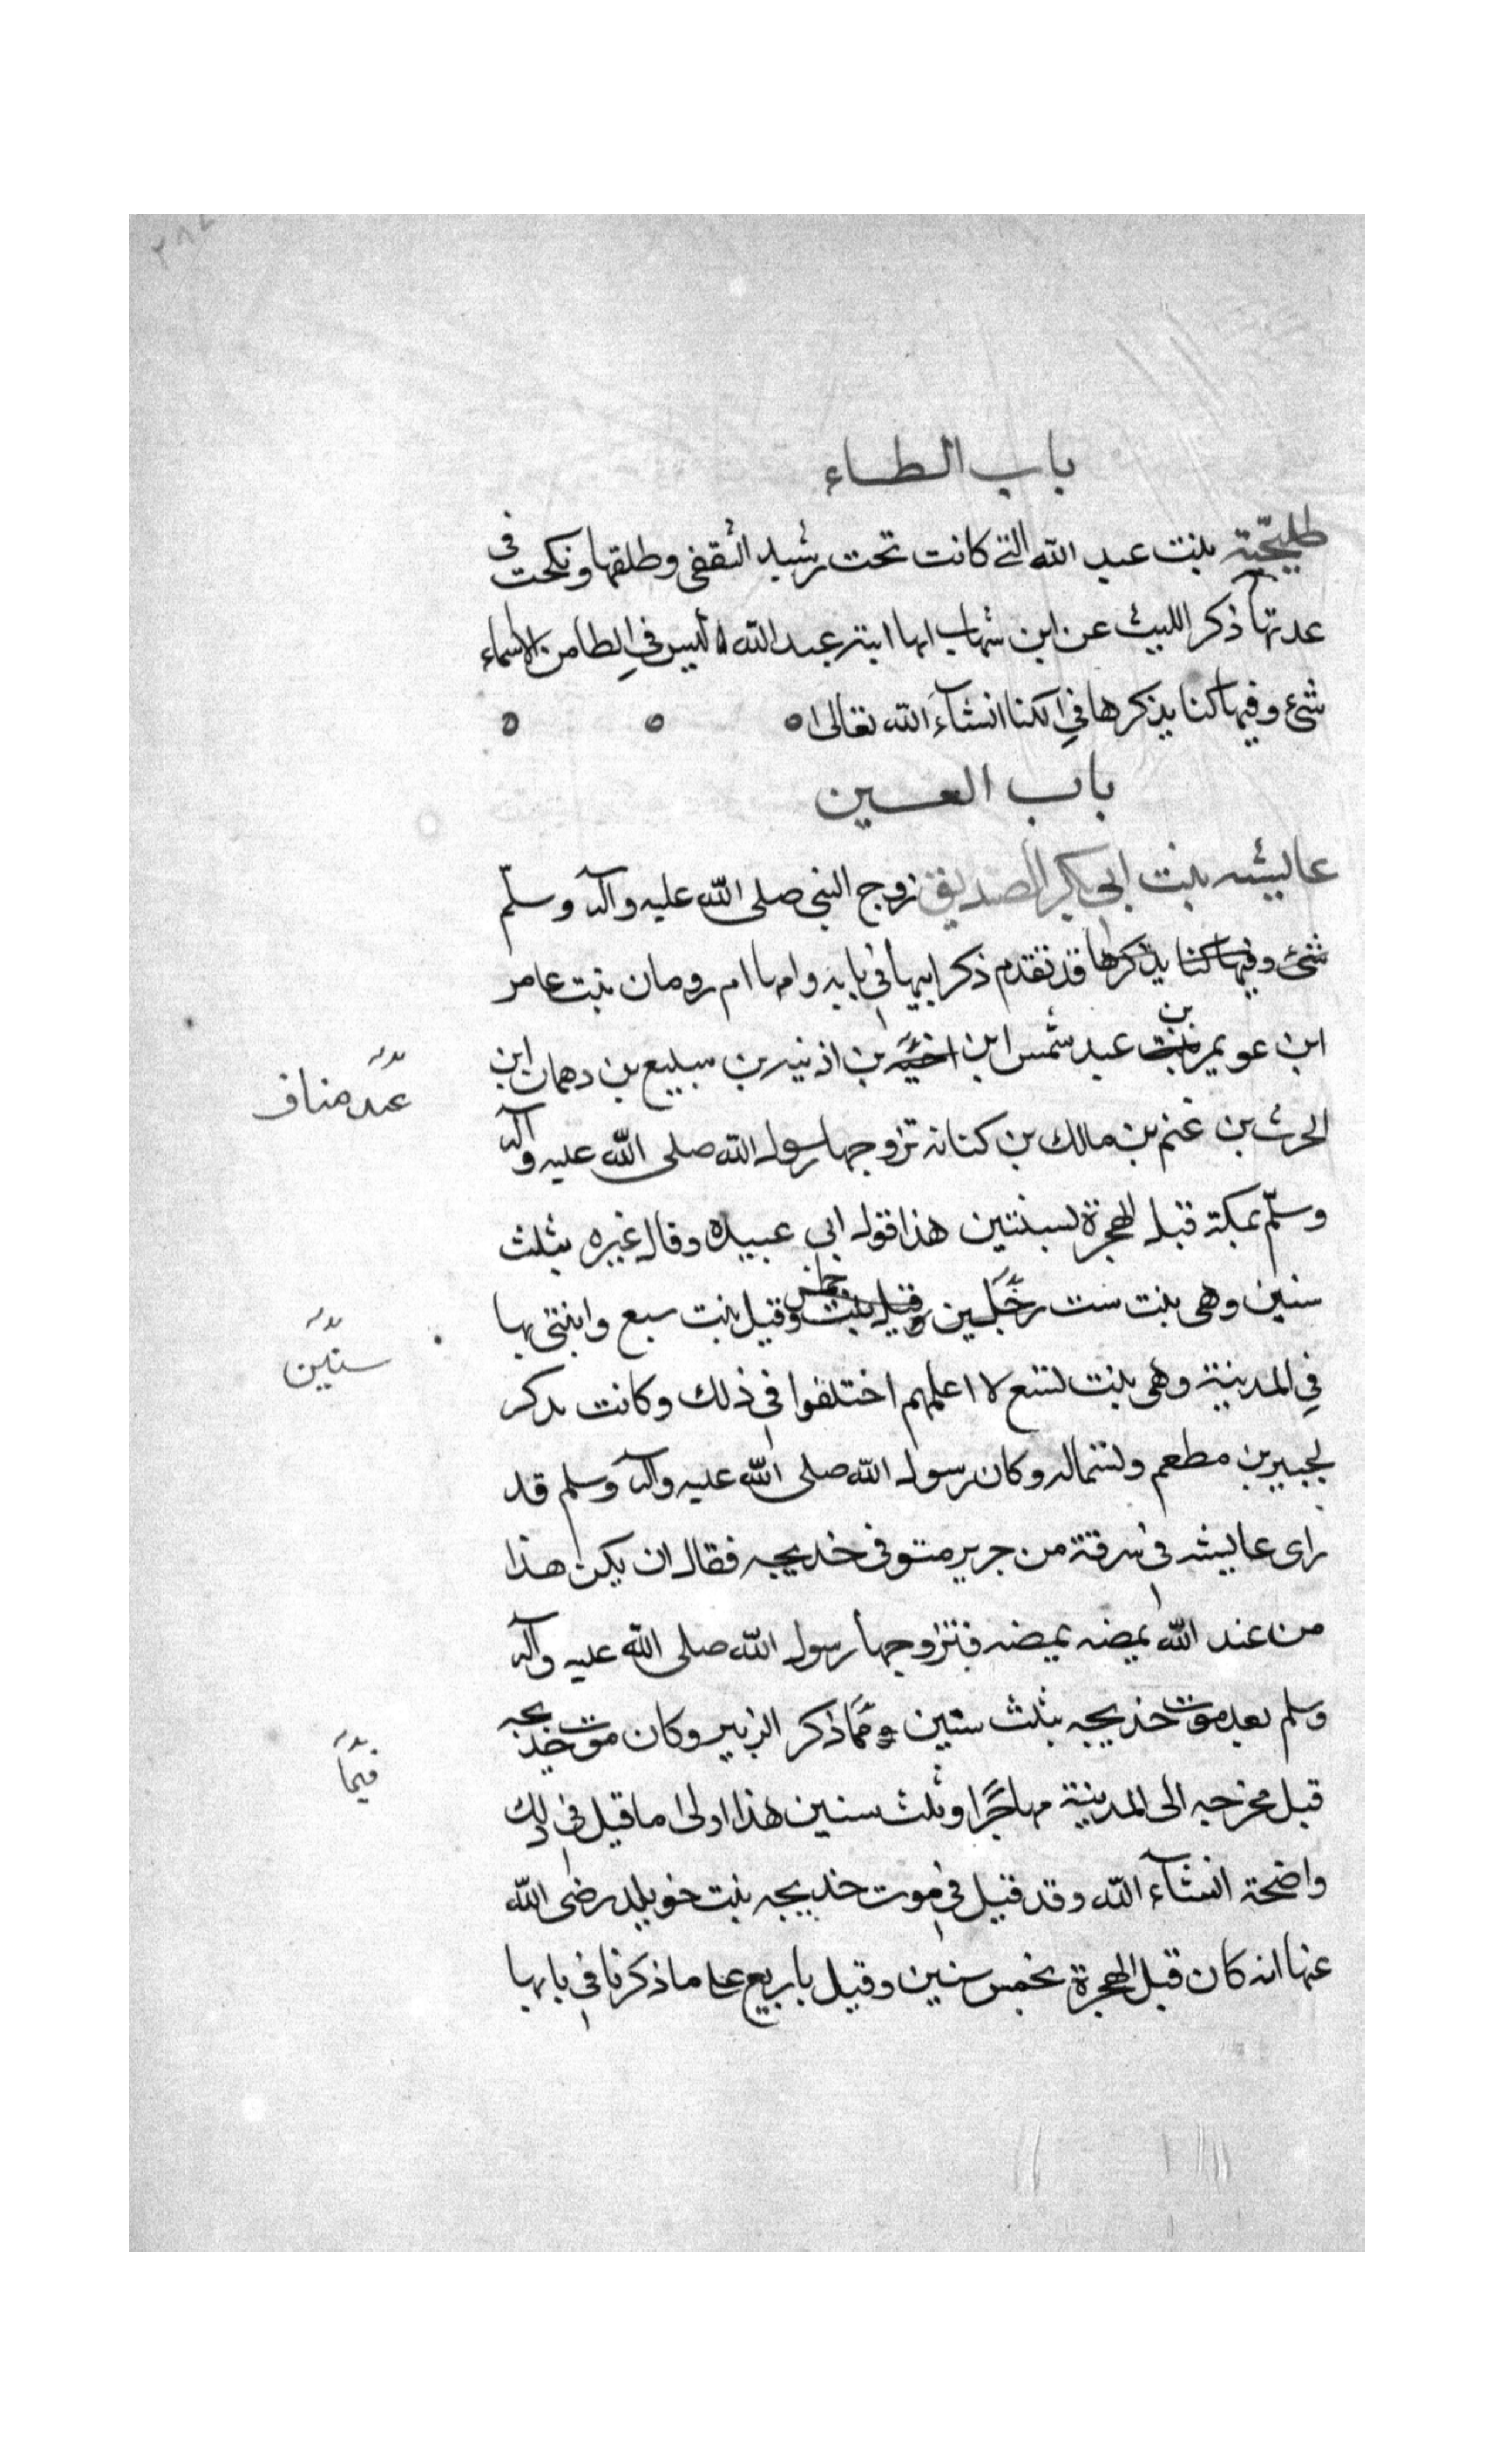 باب الطاء
طليحة بنت عبد الله التي كانت تحت رشيد الثقفي وطلقها ونكحت في
عدتها ذكر الليث عن ابن شهاب انها ابنة عبد الله ليس في الطا من الاسماء
شئ وفيها كنا يذكرها في الكنا انشآء الله تعالى
باب العين
عايشه بنت ابي بكر الصديق زوج النبي صلى الله عليه وآله وسلّم
شئ وفيها كنا يذكرها قد تقدم ذكر ابيها في بابه وامها ام رومان بنت عامر
ابن عويمر بنت بن عبد شمس ابن بن اذنيه بن سبيع بن دهمان ابن
عبد مناف
الحرث بن غنم بن مالك بن كنانه تزوجها رسول الله صلى الله عليه وآله
وسلّم بمكة قبل الهجرة بسنتين هذا قول ابي عبيده وقال غيره بثلث
سنين وهي بنت ست وقيل بنت خمس وقيل بنت سبع وابتنى بها
سنين
في المدينة وهي بنت تسع لا اعلمهم اختلفوا في ذلك وكانت تذكر
لجبير بن مطعم وتسمى له وكان رسول الله صلى الله عليه وآله وسلم قد
راى عايشه في سرقة من حرير متوفى خديجه فقال ان يكن هذا
من عند الله يمضه يمضه فتزوجها رسول الله صلى الله عليه وآله
وسلم بعد موت خديجه بثلث سنين فيما ذكر الزبير وكان موت خديجه
فيما
قبل مخرجه الى المدينة مهاجرا وثلث سنين هذا اولى ما قيل في ذلك
واضحة انشآء الله وقد قيل في موت خديجه بنت خويلد رضى الله
عنها انه كان قبل الهجرة بخمس سنين وقيل باربع على ما ذكرنا في بابها